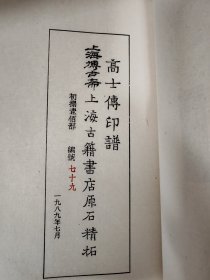 高士傳印譜
上海博古齋上海古籍書店原石精拓
初攟壹佰部 編號七十九
一九八九年七月